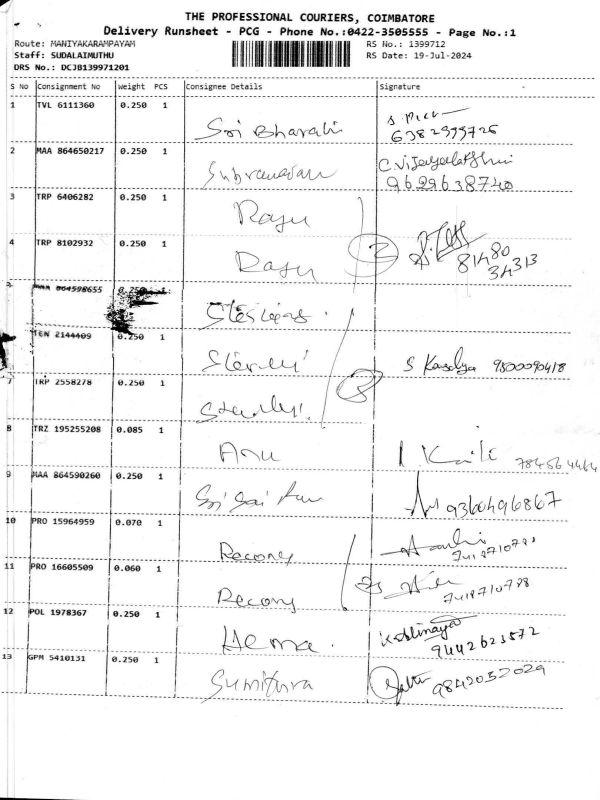 THE PROFESSIONAL COURIERS, COIMBATORE
Delivery Runsheet - PCG - Phone No.:0422-3505555 - Page No.:1
Route: MANIYAKARAMPAYAM RS No.: 1399712
Staff: SUDALAIMUTHU RS Date: 19-Jul-2024
DRS No.: DCJB139971201
S No Consignment No Weight PCS Consignee Details Signature
1 TVL 6111360 0.250 1 Sri Bharati
6382999726
2 MAA 864650217 0.250 1 Subramanian C. Vijayalakshmi
9629638740
3 TRP 6406282 0.250 1 Raju
4 TRP 8102932 0.250 1 Raju 2 81480
34313
MAA 864598655 0.250 1
TEN 2144409 0.250 1 S Kasalya 9500090418
7 TRP 2558278 0.250 1 3
8 TRZ 195255208 0.085 1 Anu 784564464
9 MAA 864590260 0.250 1 Sri Sai 9360496867
10 PRO 15964959 0.070 1 Recony
11 PRO 16605509 0.060 1 Recony 7418710788
12 POL 1978367 0.250 1 Hema.
9442623572
13 GPM 5410131 0.250 1 Sumithra 9842052029